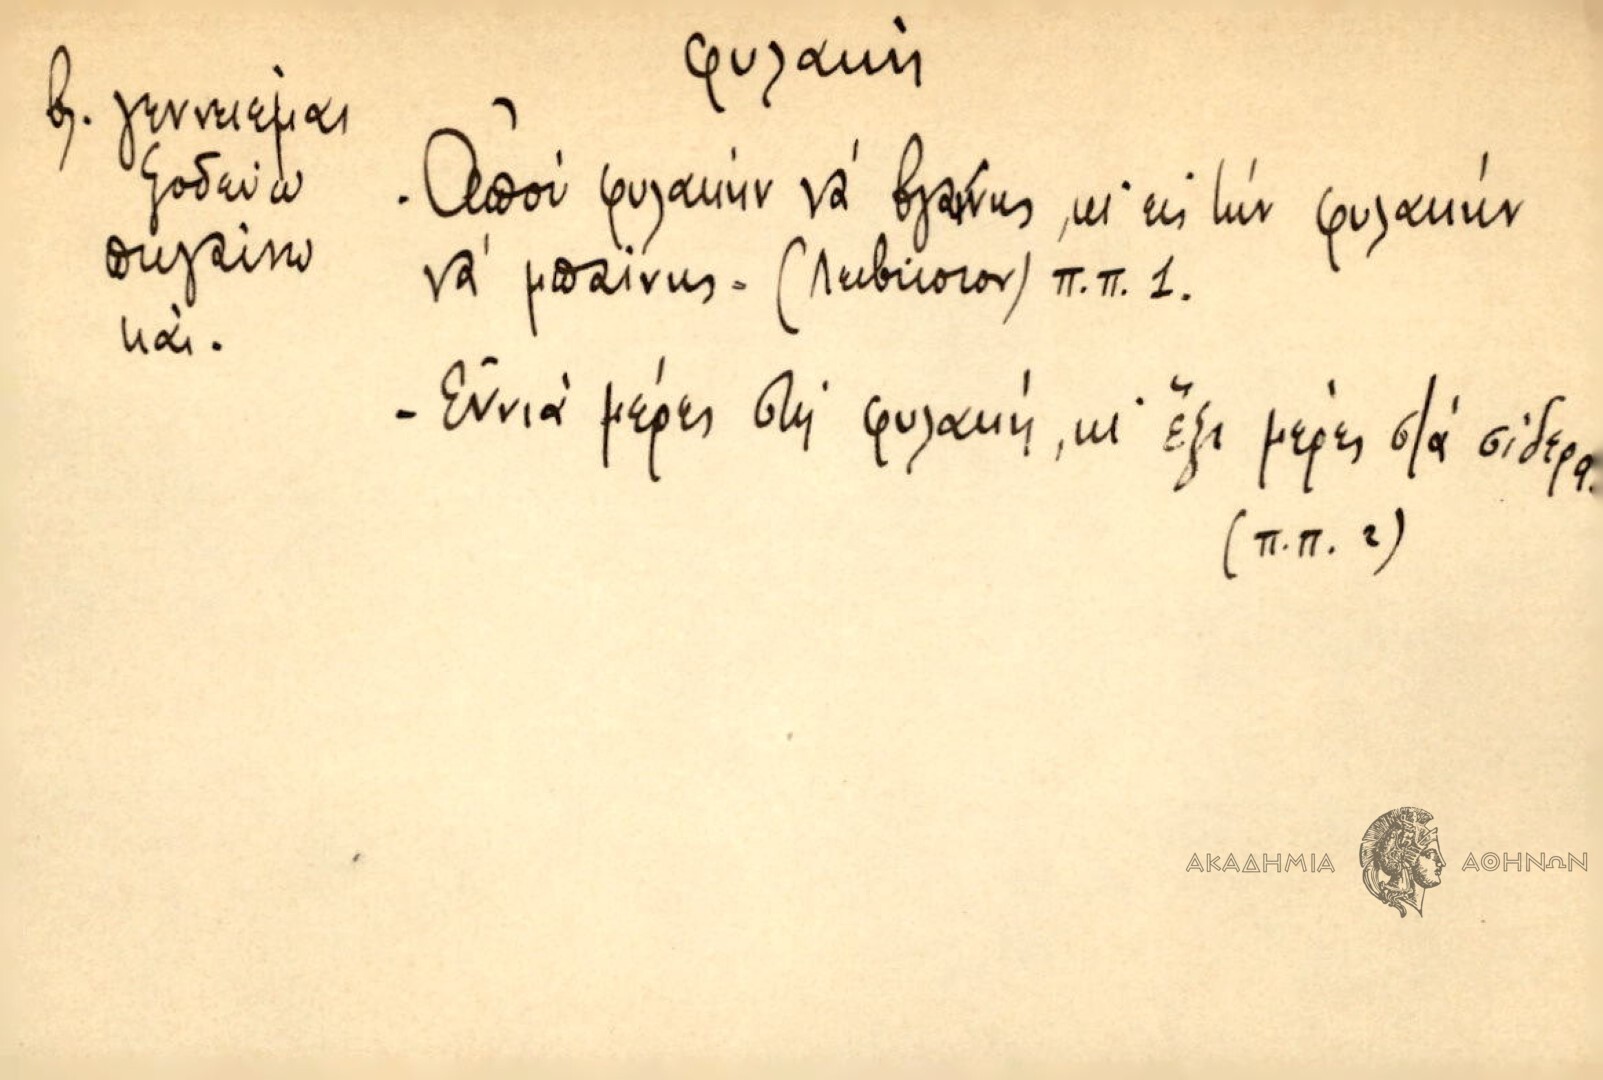 φυλακή
βλ. γεννειέμαι
ξοδεύω
πηγαίνω
κάι.
- Ἀποὺ φυλακήν νά βγαίνῃς, κι' εἰς τήν φυλακήν
νά μπαίνῃς - (Λεβίδιον) π.π. 1.
- Ἐννιά μέρες στή φυλακή, κι' ἕξι μέρες στά σίδερα.
(π.π. 2)
ΑΚΑΔΗΜΙΑ ΑΘΗΝΩΝ